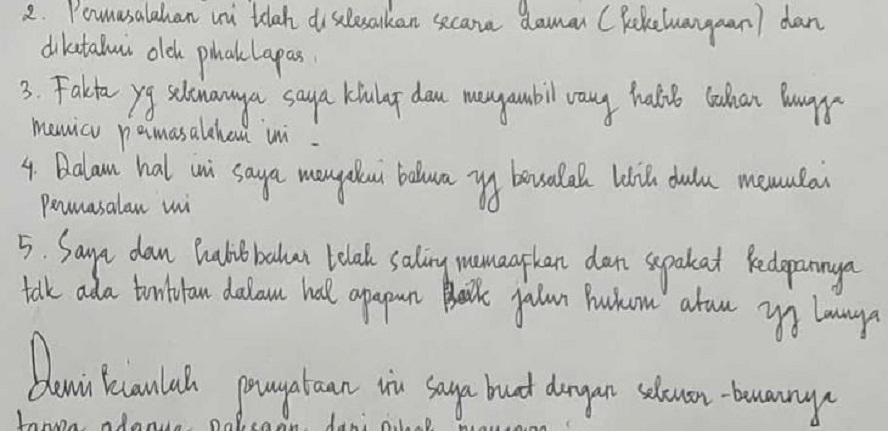 2. Permasalahan ini telah diselesaikan secara damai (kekeluargaan) dan
diketahui oleh pihak Lapas.
3. Fakta yg sebenarnya saya khilaf dan mengambil uang habib bahar hingga
memicu permasalahan ini.
4. Dalam hal ini saya mengakui bahwa yg bersalah lebih dulu memulai
permasalan ini
5. Saya dan habib bahar telah saling memaafkan dan sepakat kedepannya
tdk ada tuntutan dalam hal apapun baik jalur hukum atau yg lainnya
Demikianlah pernyataan ini saya buat dengan sebenar-benarnya
tanpa adanya paksaan dari pihak manapun.